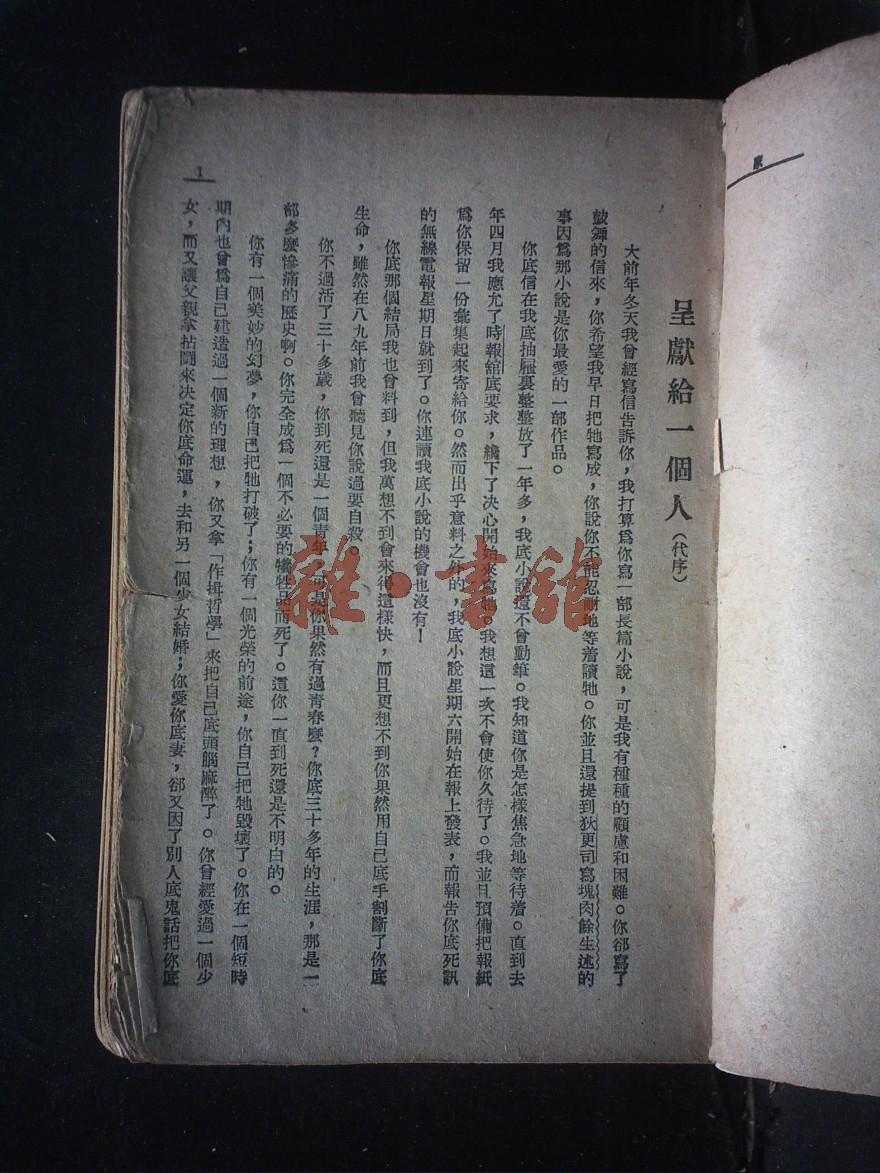 家
呈獻給一個人(代序)
大前年冬天我曾經寫信告訴你,我打算爲你寫一部長篇小說,可是我有種種的顧慮和困難。你卻寫了
鼓舞的信來,你希望我早日把牠寫成,你說你不能忍耐地等着讀牠。你並且還提到狄更司寫塊肉餘生述的
事因爲那小說是你最愛的一部作品。
你底信在我底抽屜裏整整放了一年多,我底小說還不曾動筆。我知道你是怎樣焦急地等待着。直到去
年四月我應允了時報舘底要求,纔下了决心開始來寫牠。我想這一次不會使你久待了。我並且預備把報紙
爲你保留一份彙集起來寄給你。然而出乎意料之外的,我底小說星期六開始在報上發表,而報告你底死訊
的無線電報星期日就到了。你連讀我底小說的機會也沒有!
你底那個結局我也曾料到,但我萬想不到會來得這樣快,而且更想不到你果然用自己底手割斷了你底
生命,雖然在八九年前我曾聽見你說過要自殺。
你不過活了三十多歲,你到死還是一個青年,可是你果然有過青春麼?你底三十多年的生涯,那是一
部多麼慘痛的歷史啊。你完全成爲一個不必要的犧牲品而死了。這你一直到死還是不明白的。
你有一個美妙的幻夢,你自己把牠打破了;你有一個光榮的前途,你自己把牠毀壞了。你在一個短時
期內也曾爲自己建造過一個新的理想,你又拿「作揖哲學」來把自己底頭腦麻醉了。你曾經愛過一個少
女,而又讓父親拿拈鬮來决定你底命運,去和另一個少女結婚;你愛你底妻,卻又因了別人底鬼話把你底
1
雜·書舘